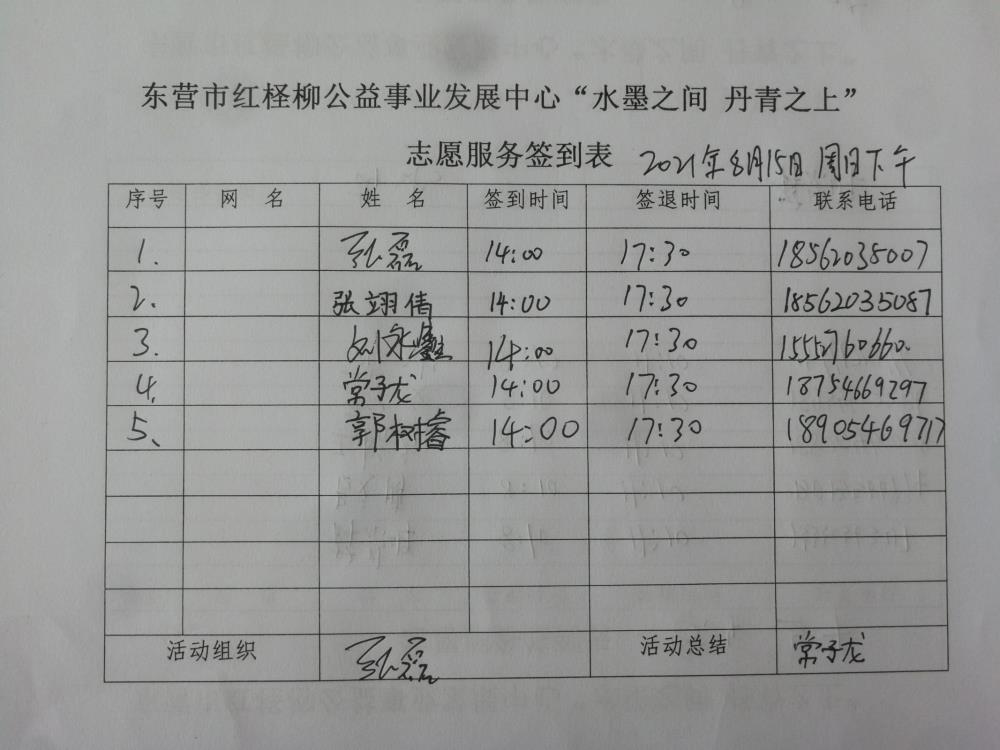 东营市红柽柳公益事业发展中心“水墨之间 丹青之上”
志愿服务签到表 2021年8月15日 周日下午
序号 网 名 姓 名 签到时间 签退时间 联系电话
1. 张磊 14:00 17:30 18562035007
2. 张翊倩 14:00 17:30 18562035087
3. 14:00 17:30 15552760660.
4. 常子龙 14:00 17:30 18754669297
5、 郭树睿 14:00 17:30 18905469717
活动组织 张磊 活动总结 常子龙